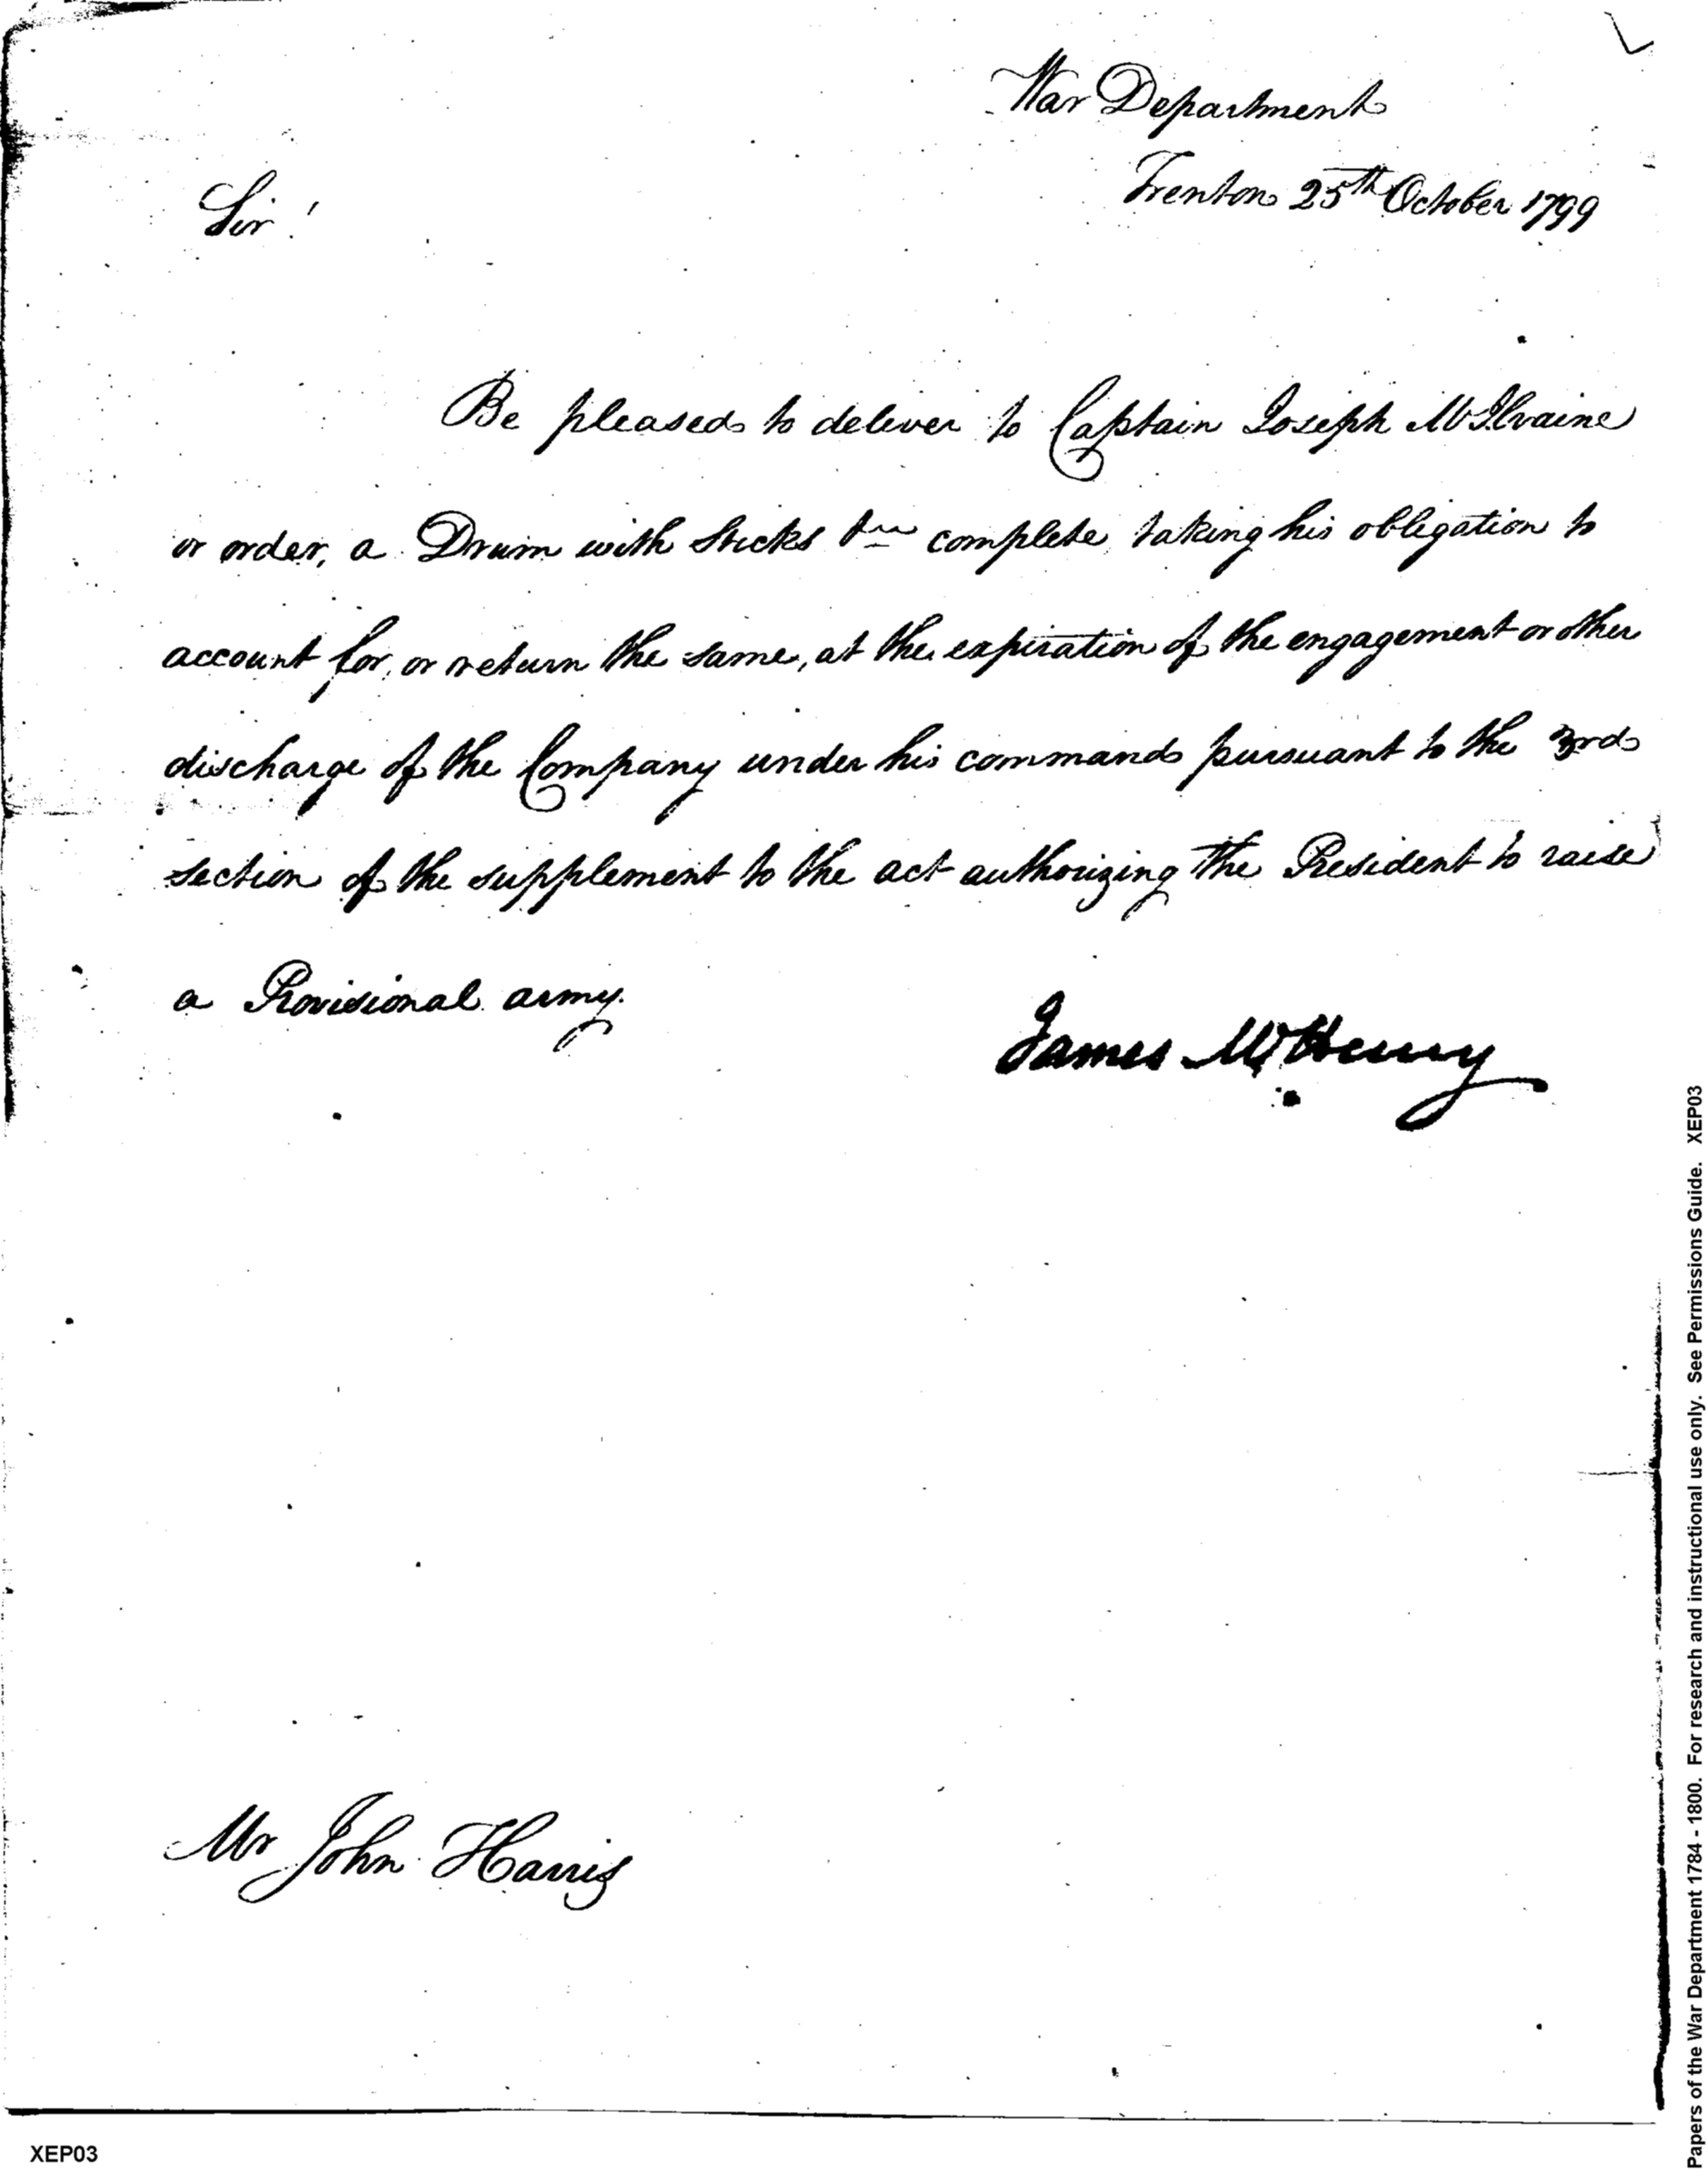 War Department
Trenton 25th October 1799
Sir!
Be pleased to deliver to Captain Joseph McIlvaine
or order, a Drum with Sticks complete, taking his obligation to
account for, or return the same, at the expiration of the engagement or other
discharge of the Company under his command pursuant to the 3rd
section of the supplement to the act authorizing the President to raise
a Provisional army.
James McHenry
Mr John Harris
XEP03
Papers of the War Department 1784 - 1800. For research and instructional use only. See Permissions Guide. XEP03